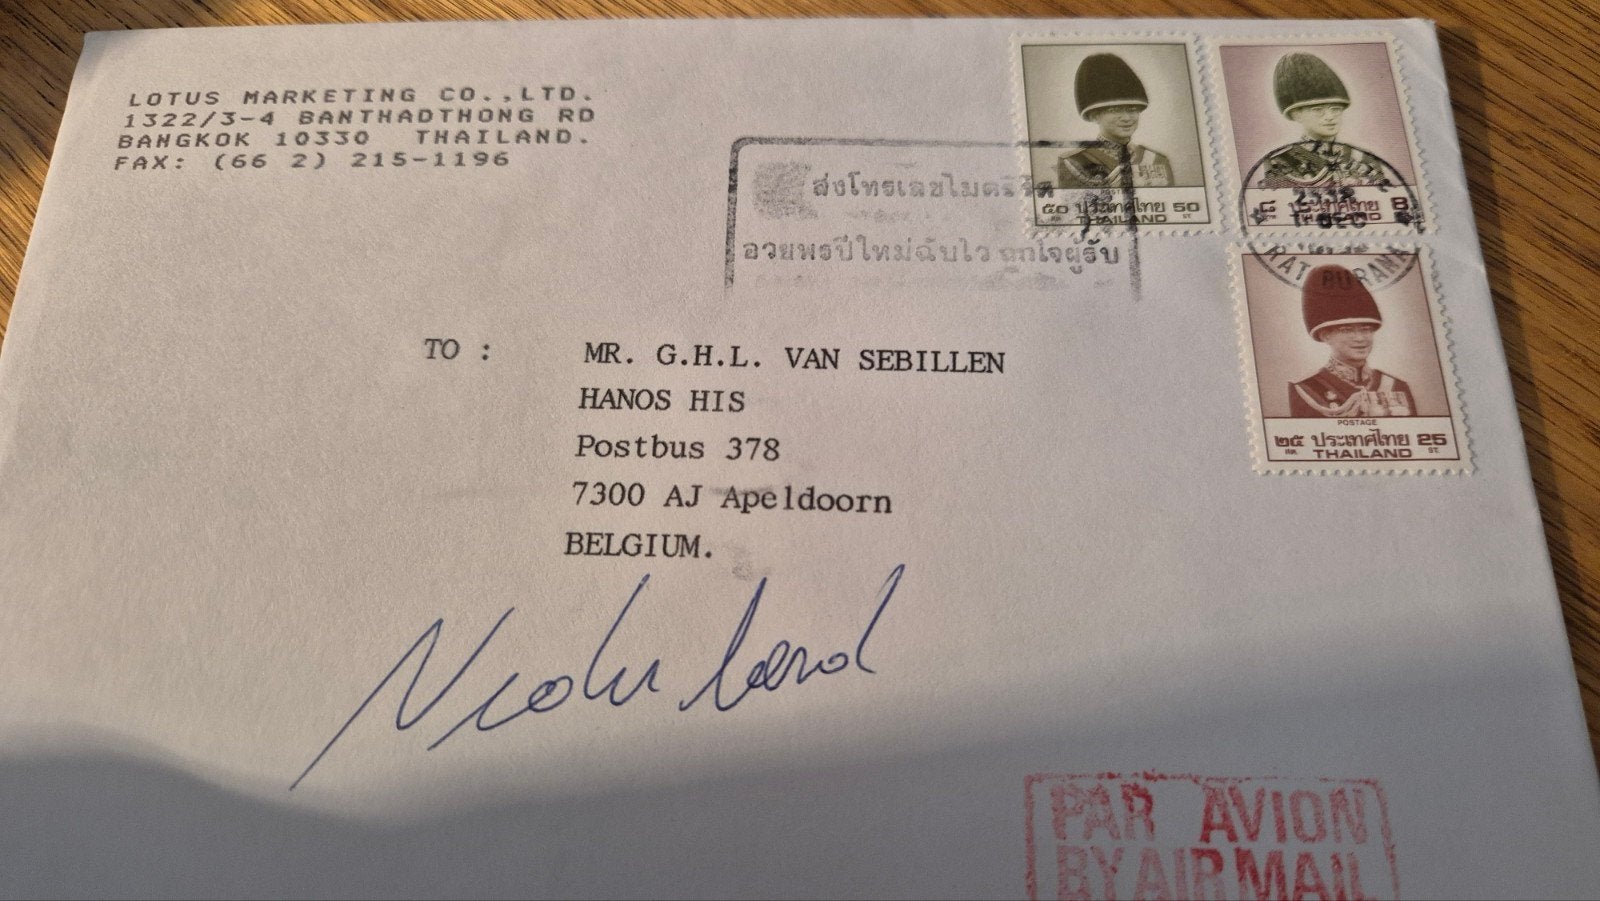 LOTUS MARKETING CO.,LTD.
1322/3-4 BANTHADTHONG RD
BANGKOK 10330 THAILAND.
FAX: (66 2) 215-1196
ส่งโทรเลขไมตรีจิต
อวยพรปีใหม่ฉับไว ถูกใจผู้รับ
๕๐ ประเทศไทย 50
สต. ST.
THAILAND
๘ ประเทศไทย 8
THAILAND
DEC
RAT BURANA
POSTAGE
๒๕ ประเทศไทย 25
สต. ST.
THAILAND
TO :
MR. G.H.L. VAN SEBILLEN
HANOS HIS
Postbus 378
7300 AJ Apeldoorn
BELGIUM.
Nederland
PAR AVION
BY AIR MAIL